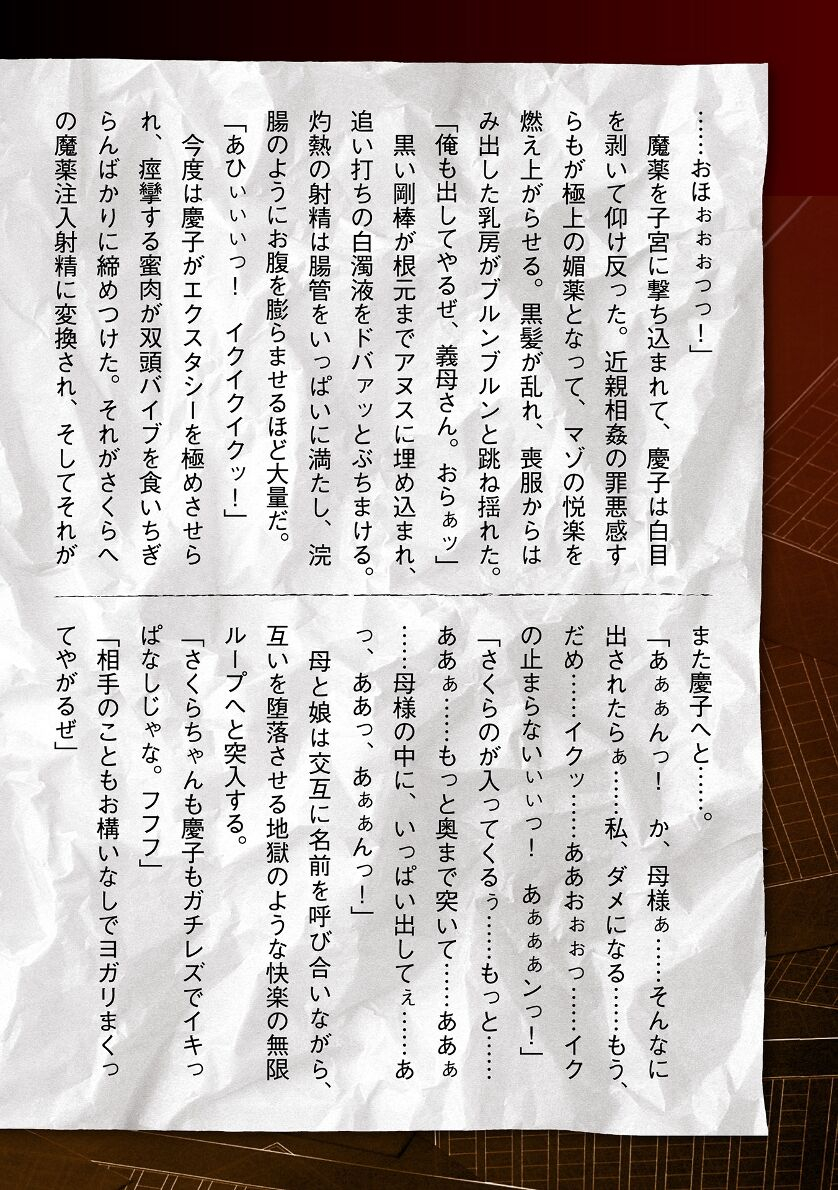 ……おほぉぉぉつっ！」
　魔薬を子宮に撃ち込まれて、慶子は白目
を剥いて仰け反った。近親相姦の罪悪感す
らもが極上の媚薬となって、マゾの悦楽を
燃え上がらせる。黒髪が乱れ、喪服からは
み出した乳房がブルンブルンと跳ね揺れた。
「俺も出してやるぜ、義母さん。おらぁッ」
　黒い剛棒が根元までアヌスに埋め込まれ、
追い打ちの白濁液をドバァッとぶちまける。
灼熱の射精は腸管をいっぱいに満たし、浣
腸のようにお腹を膨らませるほど大量だ。
「あひぃぃぃっ！　イクイクイクッ！」
　今度は慶子がエクスタシーを極めさせら
れ、痙攣する蜜肉が双頭バイブを食いちぎ
らんばかりに締めつけた。それがさくらへ
の魔薬注入射精に変換され、そしてそれが
また慶子へと……。
「あぁぁんっ！　か、母様ぁ……そんなに
出されたらぁ……私、ダメになる……もう、
だめ……イクッ……ああおぉぉっ……イク
の止まらないぃぃっ！　あぁぁぁンっ！」
「さくらのが入ってくるぅ……もっと……
ああぁ……もっと奥まで突いて……ああぁ
……母様の中に、いっぱい出してぇ……あ
っ、ああっ、あぁぁんっ！」
　母と娘は交互に名前を呼び合いながら、
互いを堕落させる地獄のような快楽の無限
ループへと突入する。
「さくらちゃんも慶子もガチレズでイキっ
ぱなしじゃな。フフフ」
「相手のこともお構いなしでヨガリまくっ
てやがるぜ」